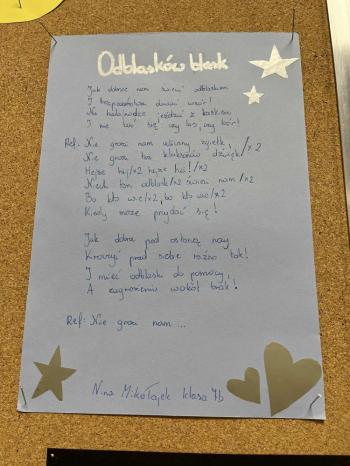 Odblasków blask
Jak dobrze nam świecić odblaskiem
I bezpieczeństwa dawać wzór!
Na hulajnodze jeździć z kaskiem
I nie bać się czy las, czy bór!
Ref: Nie grozi nam uliczny zgiełk,
Nie grozi też klaksonów dźwięk /x2
Hejże hej/x2 hejże ha!/x2
Niech ten odblask/x2 świeci nam/x2
Bo kto wie/x2, bo kto wie/x2
Kiedy może przydać się!
Jak dobrze pod osłoną nocy
Kroczyć przed siebie raźno tak!
I mieć odblaski do pomocy,
A zagrożenia wokół brak!
Ref: Nie grozi nam ...
Nina Mikołajek klasa 7b